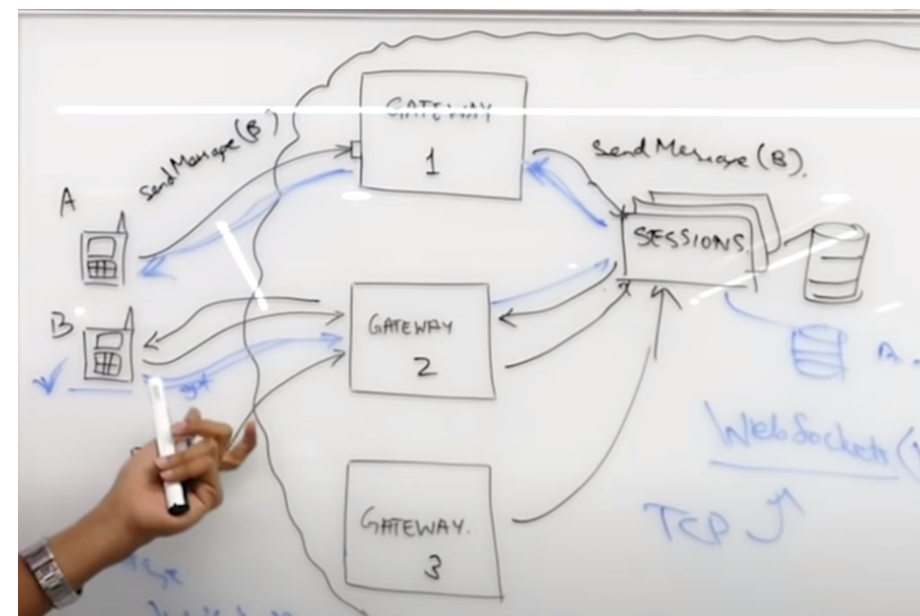 GATEWAY
1
SendMessage(B)
SendMessage(B).
A
SESSIONS
B
GATEWAY
2
got
WebSockets (
TCP
GATEWAY.
3